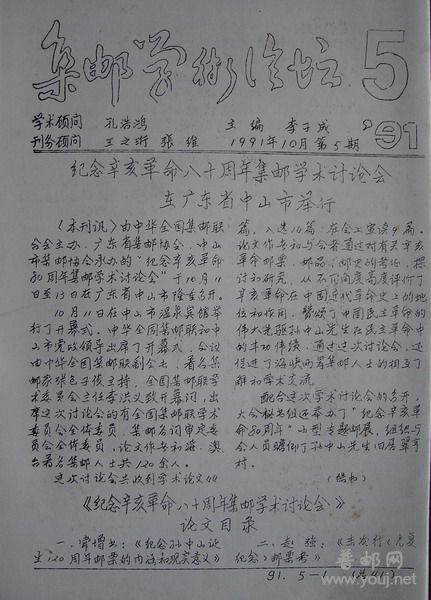 集邮学术论坛 5
学术顾问 孔浩鸿 主编 李子成 '91
刊务顾问 王之浙 張维 1991年10月第5期
纪念辛亥革命八十周年集邮学术讨论会
在广东省中山市举行
《本刊讯》由中华全国集邮联
合会主办、广东省集邮协会、中山
市集邮协会承办的“纪念辛亥革命
80周年集邮学术讨论会”于10月11
日至13日在广东省中山市隆重召开。
10月11日在中山市温泉宾馆举
行了开幕式。中华全国集邮联和中
山市党政领导出席了开幕式。会议
由中华全国集邮联副会长、著名集
邮家张包子俊主持,全国集邮联学
术委员会主任李洪义致开幕词,出
席这次讨论会的有全国集邮联学术
委员会全体委员,集邮名词审定委
员会全体委员,论文作者和海、澳
台著名集邮人士共120余人。
这次讨论会共收到学术论文
篇,入选16篇,在会上宣读9篇。
论文作者和与会者通过对有关辛亥
革命邮票、邮品、邮史的考证、探
讨和研究,从不同角度高度评价了
辛亥革命在中国近代革命史上的地
位和作用,赞颂了中国民主革命的
伟大先驱孙中山先生在民主革命中
的丰功伟绩。通过这次讨论会,还
促进了海峡两岸集邮人士的相互了
解和学术交流。
配合这次学术讨论会的召开,
大会秘书组还举办了“纪念辛亥革
命80周年”小型专题邮展,组织与
会人员瞻仰了孙中山先生旧居翠亨
村。
《纪念辛亥革命八十周年集邮学术讨论会》
论文目录
一、常增书:《纪念孙中山诞
生120周年邮票的内容和现实意义》
二、赵 :《 发行〈光复
纪念〉邮票考》
91.5-1
普邮网
www.youj.net